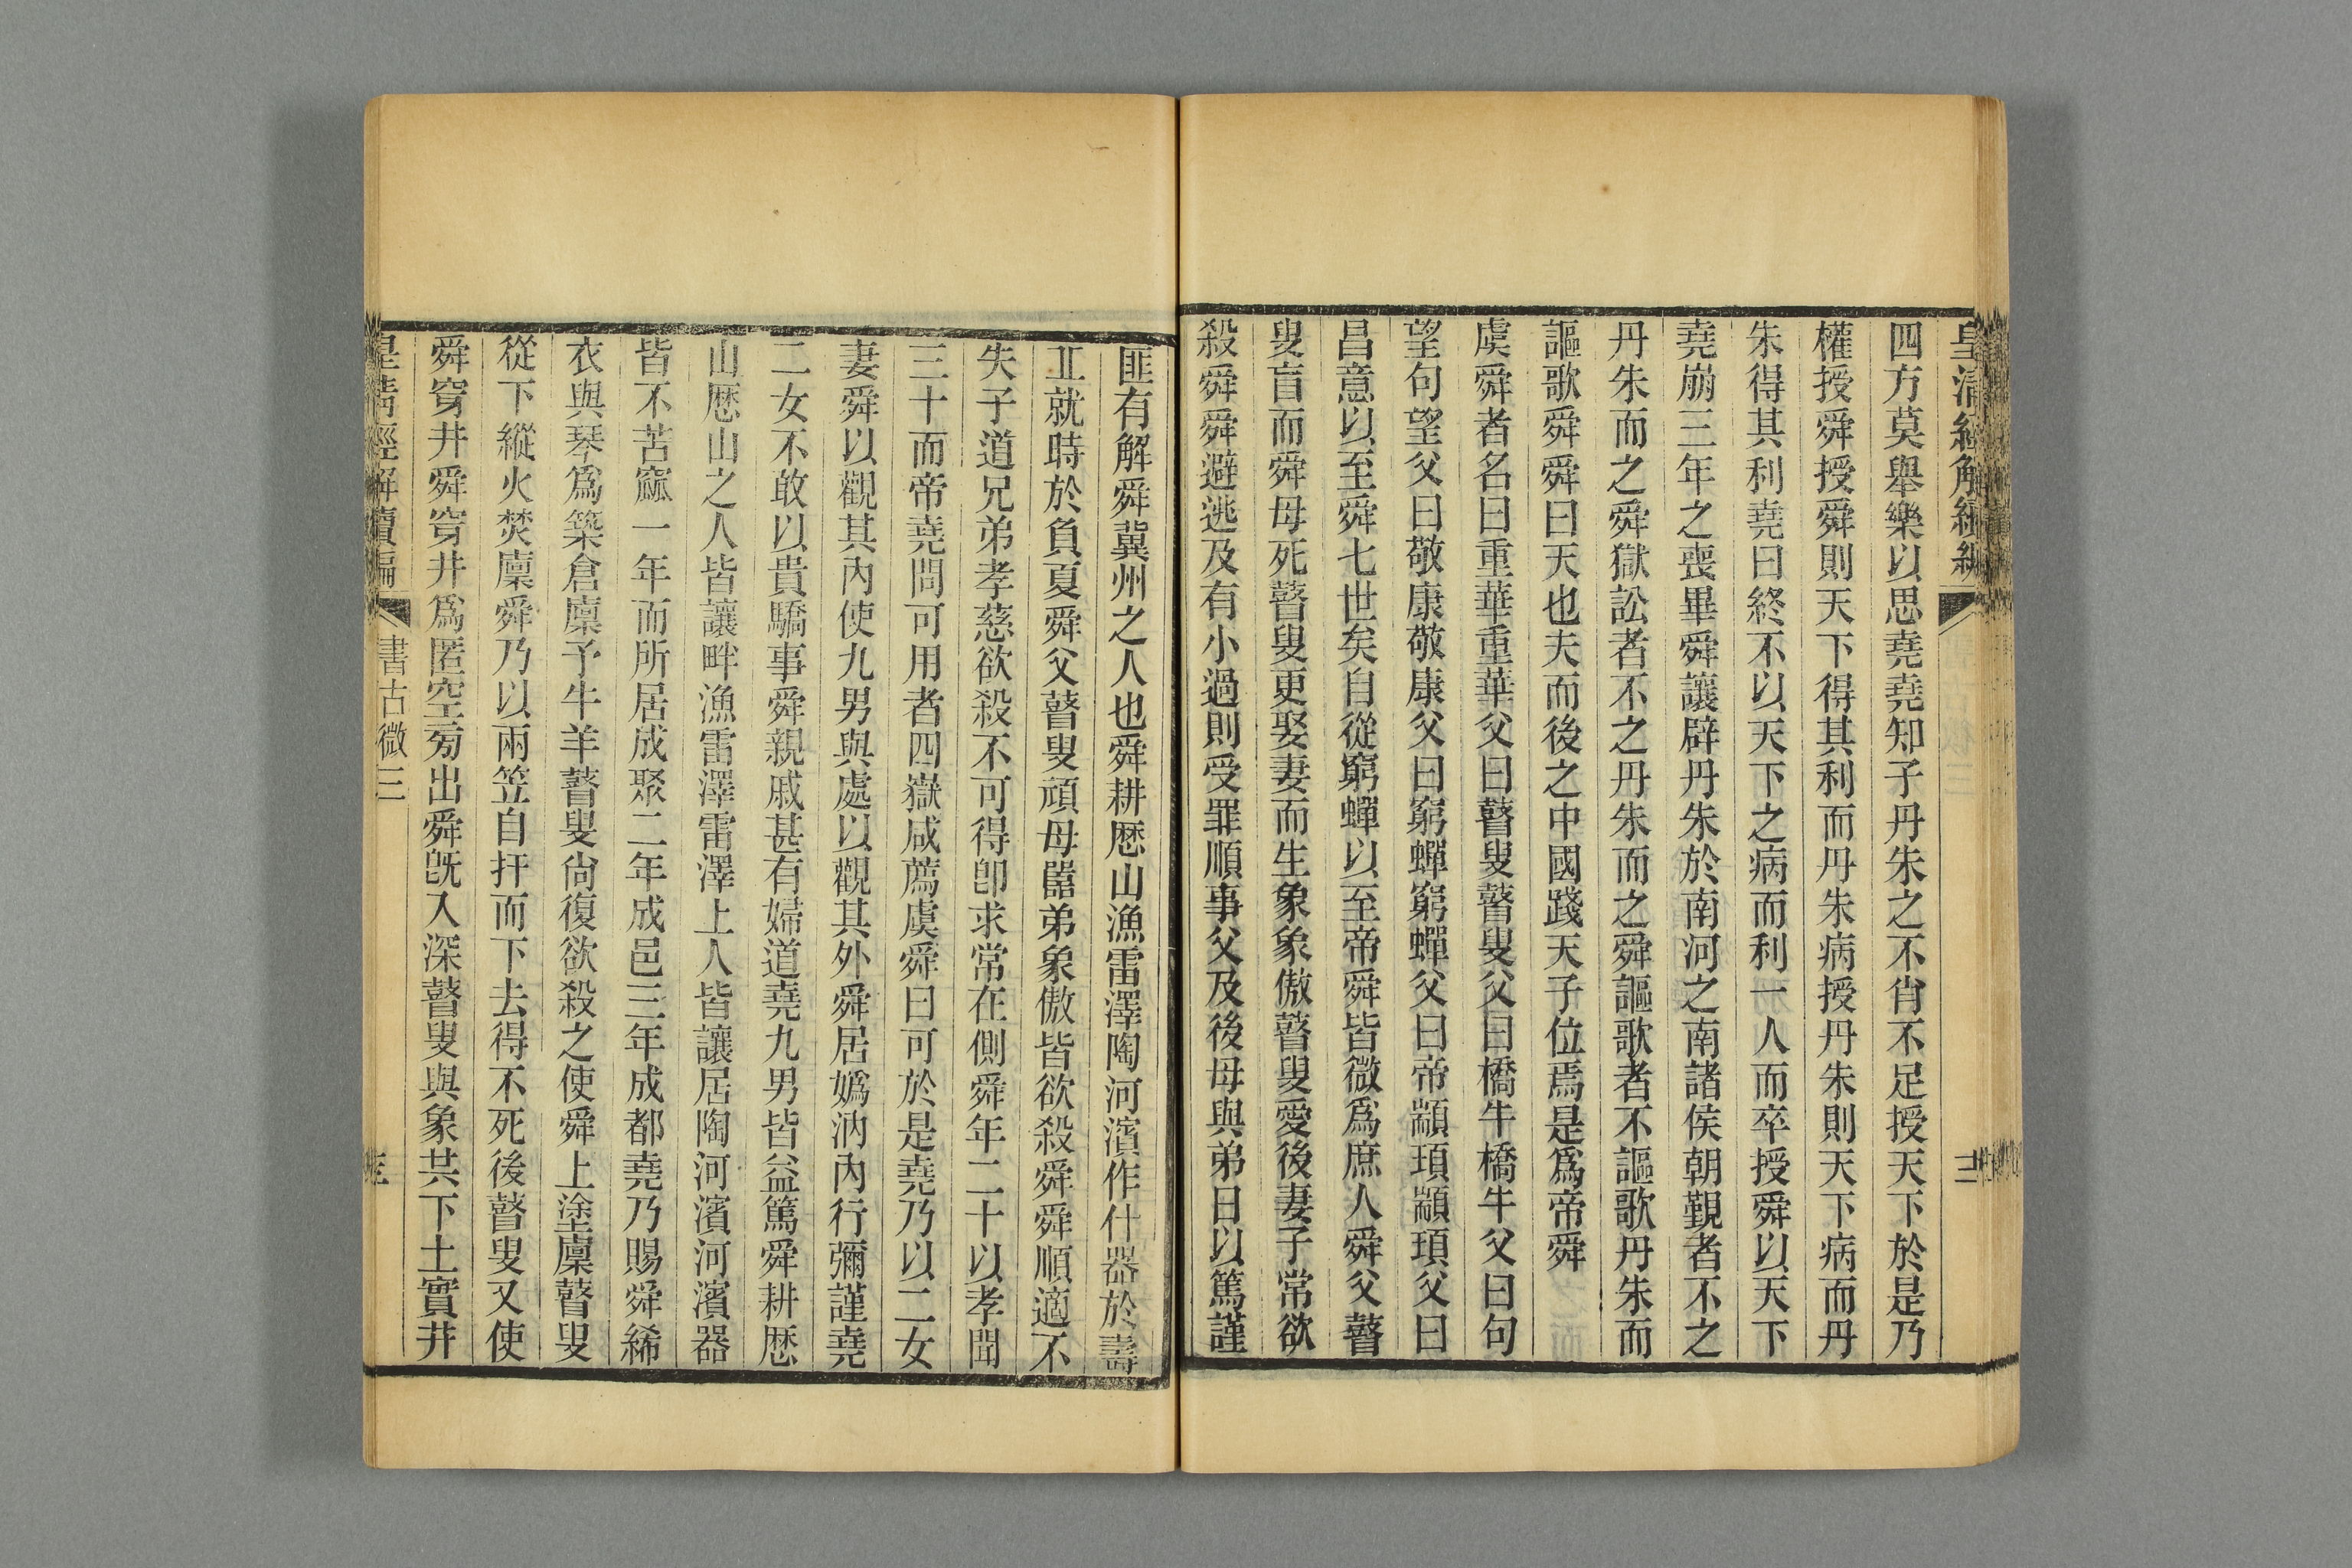 皇清經解續編
四方莫舉樂以思堯堯知子丹朱之不肖不足授天下於是乃
權授舜授舜則天下得其利而丹朱病授丹朱則天下病而丹
朱得其利堯曰終不以天下之病而利一人而卒授舜以天下
堯崩三年之喪畢舜讓辟丹朱於南河之南諸侯朝覲者不之
丹朱而之舜獄訟者不之丹朱而之舜謳歌者不謳歌丹朱而
謳歌舜舜曰天也夫而後之中國踐天子位焉是爲帝舜
虞舜者名曰重華重華父曰瞽叟瞽叟父曰橋牛橋牛父曰句
望句望父曰敬康敬康父曰窮蟬窮蟬父曰帝顓頊顓頊父曰
昌意以至舜七世矣自從窮蟬以至帝舜皆微爲庶人舜父瞽
叟盲而舜母死瞽叟更娶妻而生象象傲瞽叟愛後妻子常欲
殺舜舜避逃及有小過則受罪順事父及後母與弟日以篤謹
匪有解舜冀州之人也舜耕歴山漁雷澤陶河濱作什器於壽
丠就時於負夏舜父瞽叟頑母嚚弟象傲皆欲殺舜舜順適不
失子道兄弟孝慈欲殺不可得卽求常在側舜年二十以孝聞
三十而帝堯問可用者四嶽咸薦虞舜曰可於是堯乃以二女
妻舜以觀其內使九男與處以觀其外舜居嬀汭內行彌謹堯
二女不敢以貴驕事舜親戚甚有婦道堯九男皆益篤舜耕歴
山歴山之人皆讓畔漁雷澤雷澤上人皆讓居陶河濱河濱器
皆不苦窳一年而所居成聚二年成邑三年成都堯乃賜舜絺
衣與琴爲築倉廩予牛羊瞽叟尙復欲殺之使舜上塗廩瞽叟
從下縱火焚廩舜乃以兩笠自扞而下去得不死後瞽叟又使
舜穿井舜穿井爲匿空旁出舜旣入深瞽叟與象共下土實井
皇清經解續編
書古微三